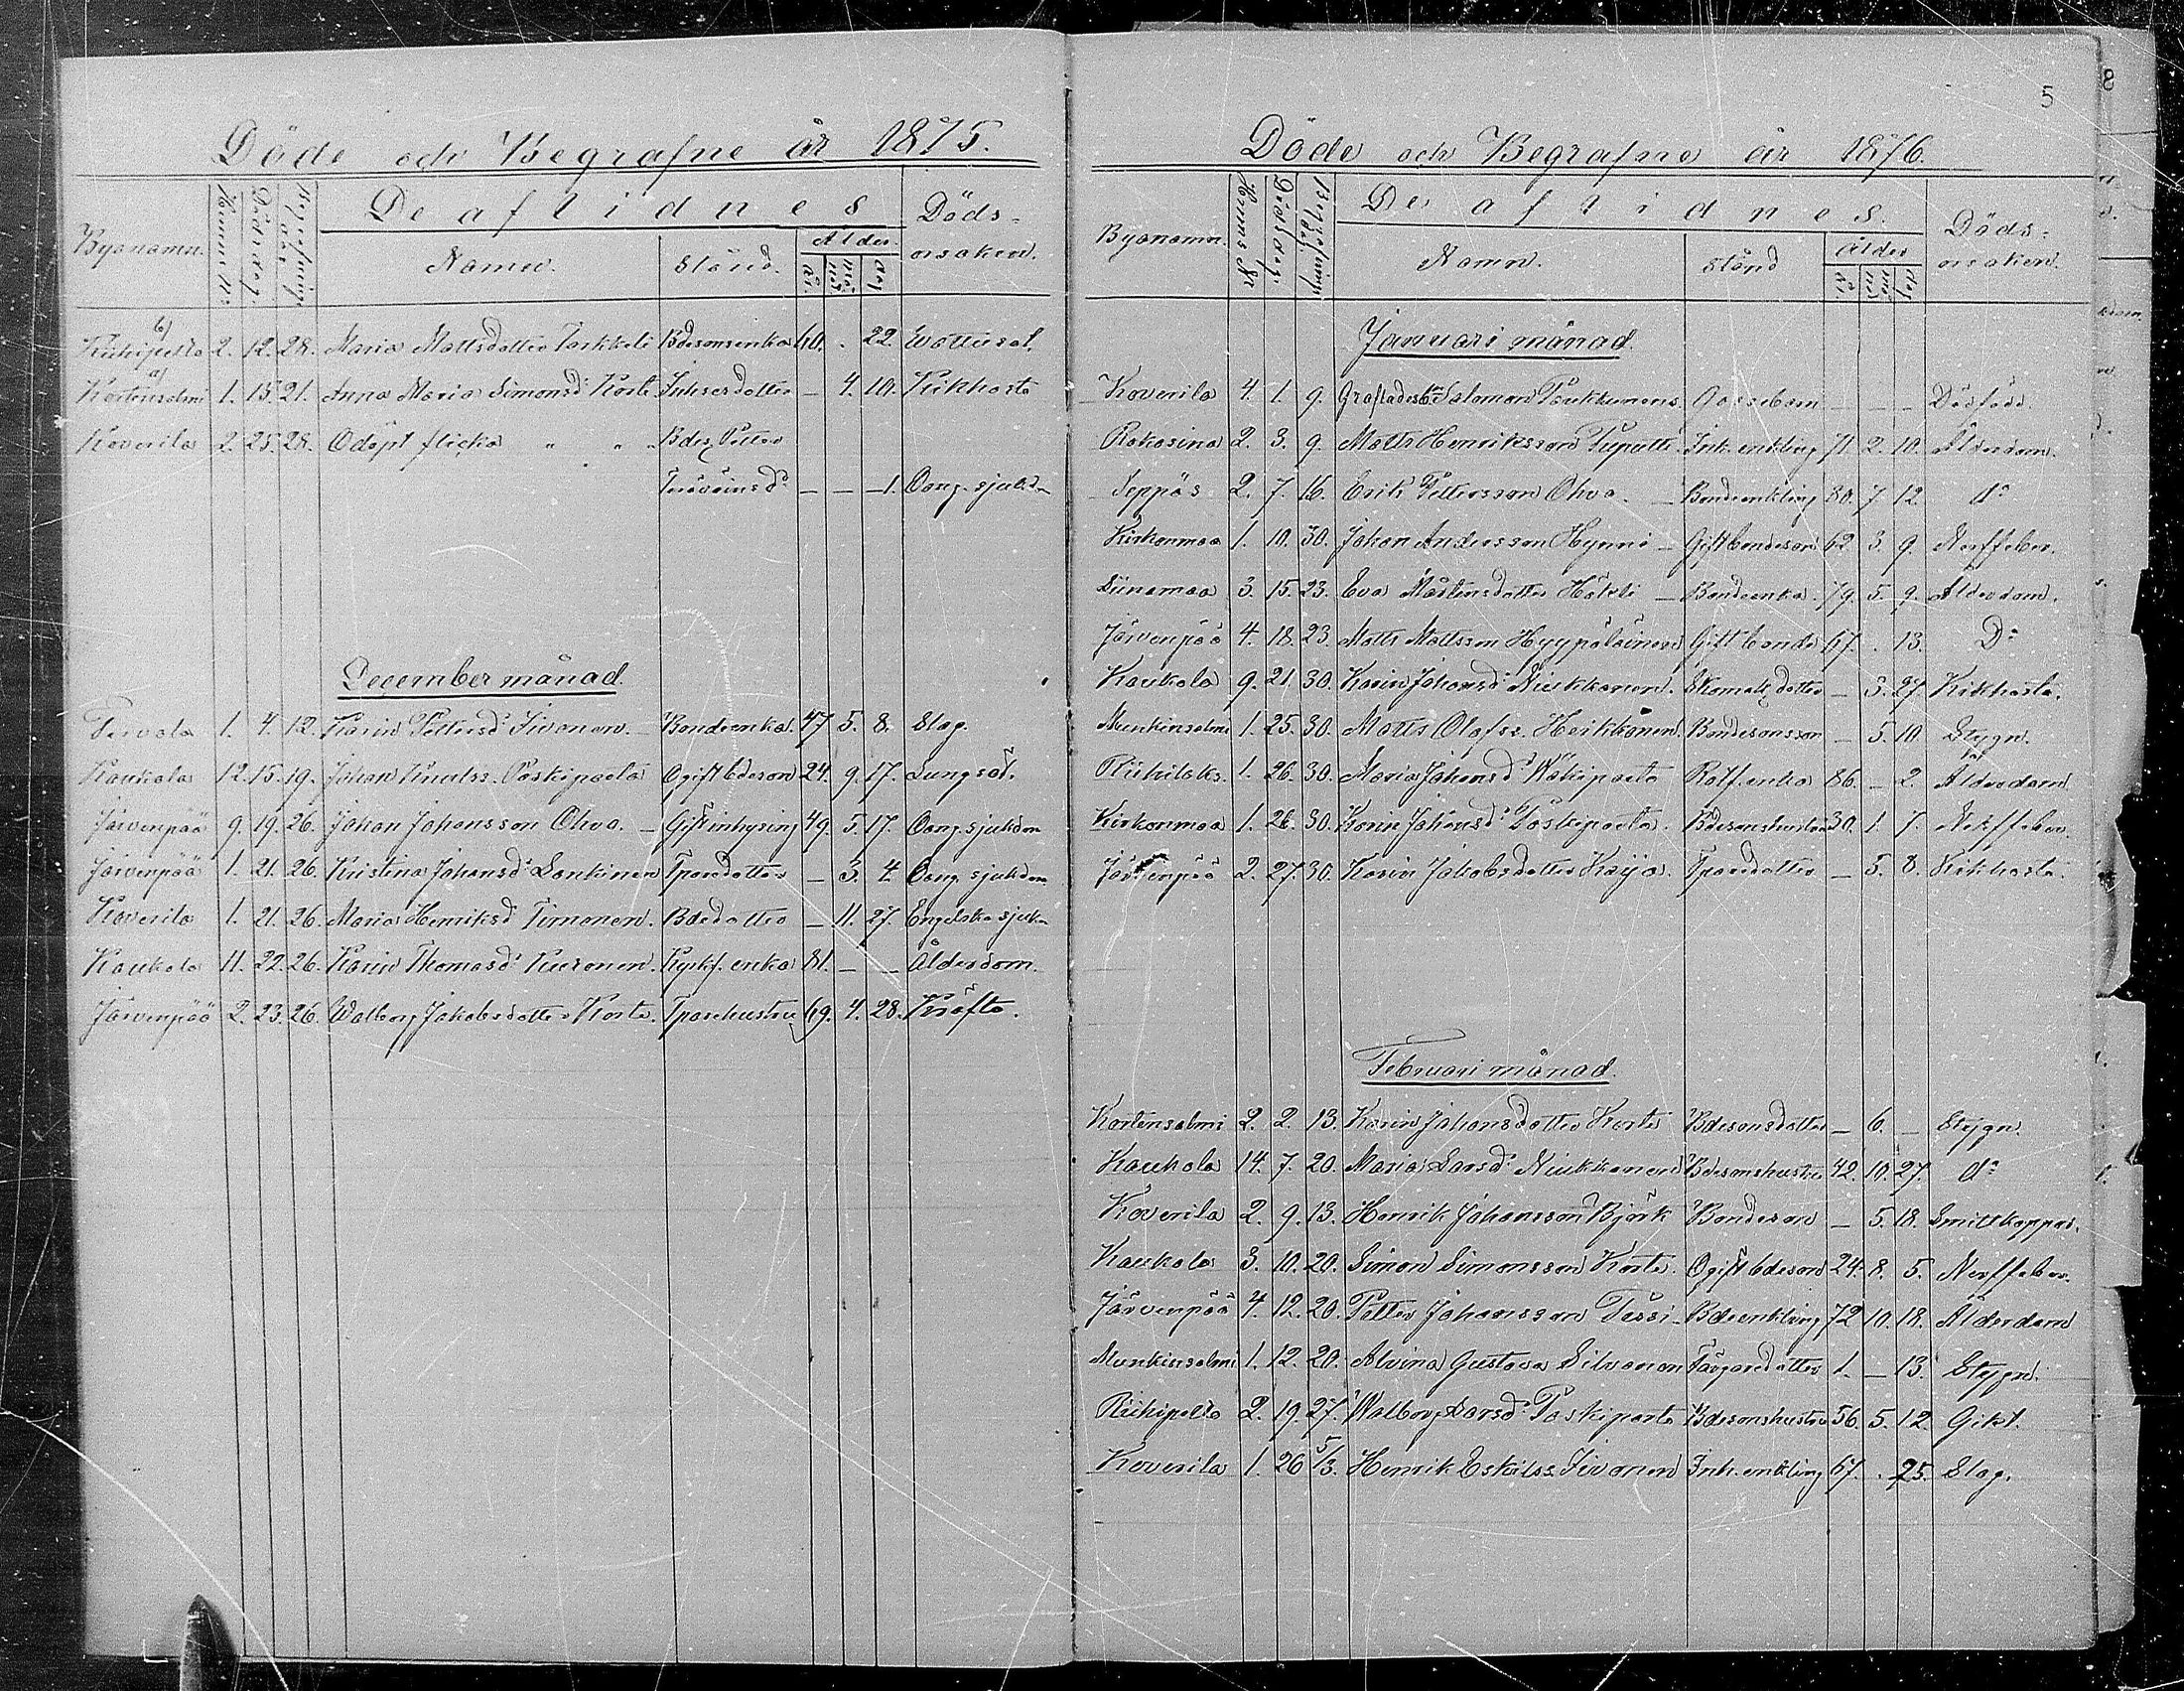 Döde och Begrafne år 1875.
Byanamn. Hemm. No: Dödsdag. Begrafnings dag. De aflidnes Döds-
Namn. Stånd. Ålder. orsaken.
år. månad dag
b) Riihipelto 2. 12. 28. Maria Mattsdotter Bdesonsenka 60. . 22. Wattusot.
a) Kortensalmi 1. 15. 21. Anna Maria Simonsd: Korte Inhsesdotter — 4. 10. Kikhosta
Koverila 2. 25. 28. Odöpt flicka " " Bdes Petter
— — 1. Oang. sjukd.
December månad.
Tervola 1. 4. 12. Karin Pettersd: Sivonen. Bondeenka. 47 5. 8. Slag.
Kaukola 12. 15. 19. Johan Knutss. Paskiparta Ogift bdeson 24. 9. 17. Lungsot.
Järvenpää 9. 19. 26. Johan Johansson Ohvo. — Gift inhysing 49. 5. 17. Oang. sjukdom
Järvenpää 1. 21. 26. Kristina Johansd: Lankinen Tparedotter — 3. 4. Oang. sjukdom
Koverila 1. 21. 26. Maria Henriksd: Timonen. Bdedotter — 11. 27. Engelska sjuk.
Kaukola 11. 22. 26. Karin Thomasd: Kuronen. Kyrkf. enka 81. — — Ålderdom.
Järvenpää 2. 23. 26. Walborg Jakobsdotter Korte. Tparehustru 69. 4. 28. Kräfta.
5
Döde och Begrafne år 1876.
Byanamn. Hemms No Dödsdag. Begrafnings dag. De aflidnes. Döds-
Namn. Stånd Ålder orsaken.
år. månad dag
Januari månad.
Koverila 4. 1. 9. Salomon Gossebarn — — — Dödfödd
Rokosina 2. 3. 9. Matts Henriksson Puputti. Inh. enkling 71. 2. 10. Ålderdom.
Seppäs 2. 7. 16. Erik Pettersson Ohvo. — Bondeenkling 80. 7 12. do
Kirkonmaa 1. 10. 30. Johan Andersson Hynni — Gift bondeson 62 3. 9. Nerffeber.
Liinamaa 3. 15. 23. Eva Mårtensdotter — Bondeenka. 79. 5. 9. Ålderdom.
Järvenpää 4. 18. 23. Matts Mattsson Hyypäläinen Gift bonde 67. . 13. Do
Kaukola 9. 21. 30. Karin Johansd: Niukkanen. Skomak. dotter — 3. 27 Kikhosta.
Munkinsalmi 1. 25. 30. Matts Olofss. Heikkonen. Bondesonsson — 5. 10 Stygn.
Riihilaks. 1. 26. 30. Maria Johansd: Wäkiparta Rotf. enka 86. — 2. Ålderdom
Kirkonmaa 1. 26. 30. Karin Johansd: Paskiparta. Bdesonshustru 30. 1. 7. Nerffeber.
Järvenpää 2. 27. 30. Karin Jakobsdotter Kaija. Tparedotter — 5. 8. Kikhosta.
Februari månad.
Kortensalmi 2. 2. 13. Karin Johansdotter Korte Bdesonsdotter — 6. — Stygn.
Kaukola 14. 7. 20. Maria Larsd: Niukkanen Bdesonshustru 42. 10. 27. do
Koverila 2. 9. 13. Henrik Johansson Björk Bondeson — 5. 18. Smittkoppor.
Kaukola 3. 10. 20. Simon Simonsson Korte. Ogift bdeson 24. 8. 5. Nerffeber.
Järvenpää 4. 12. 20. Petter Johansson Tessi. Bdeenkling 72 10. 18. Ålderdom
Munkinsalmi 1. 12. 20. Alvina Gustava Silvonen Färgaredotter 1. — 13. Stygn.
Riihipelto 2. 19. 27. Walborg Larsd: Paskiparta Bdesonshustru 56. 5. 12. Gikt.
Koverila 1. 26 5/3. Henrik Eskilss. Sivonen Inh. enkling 67. . 25. Slag.